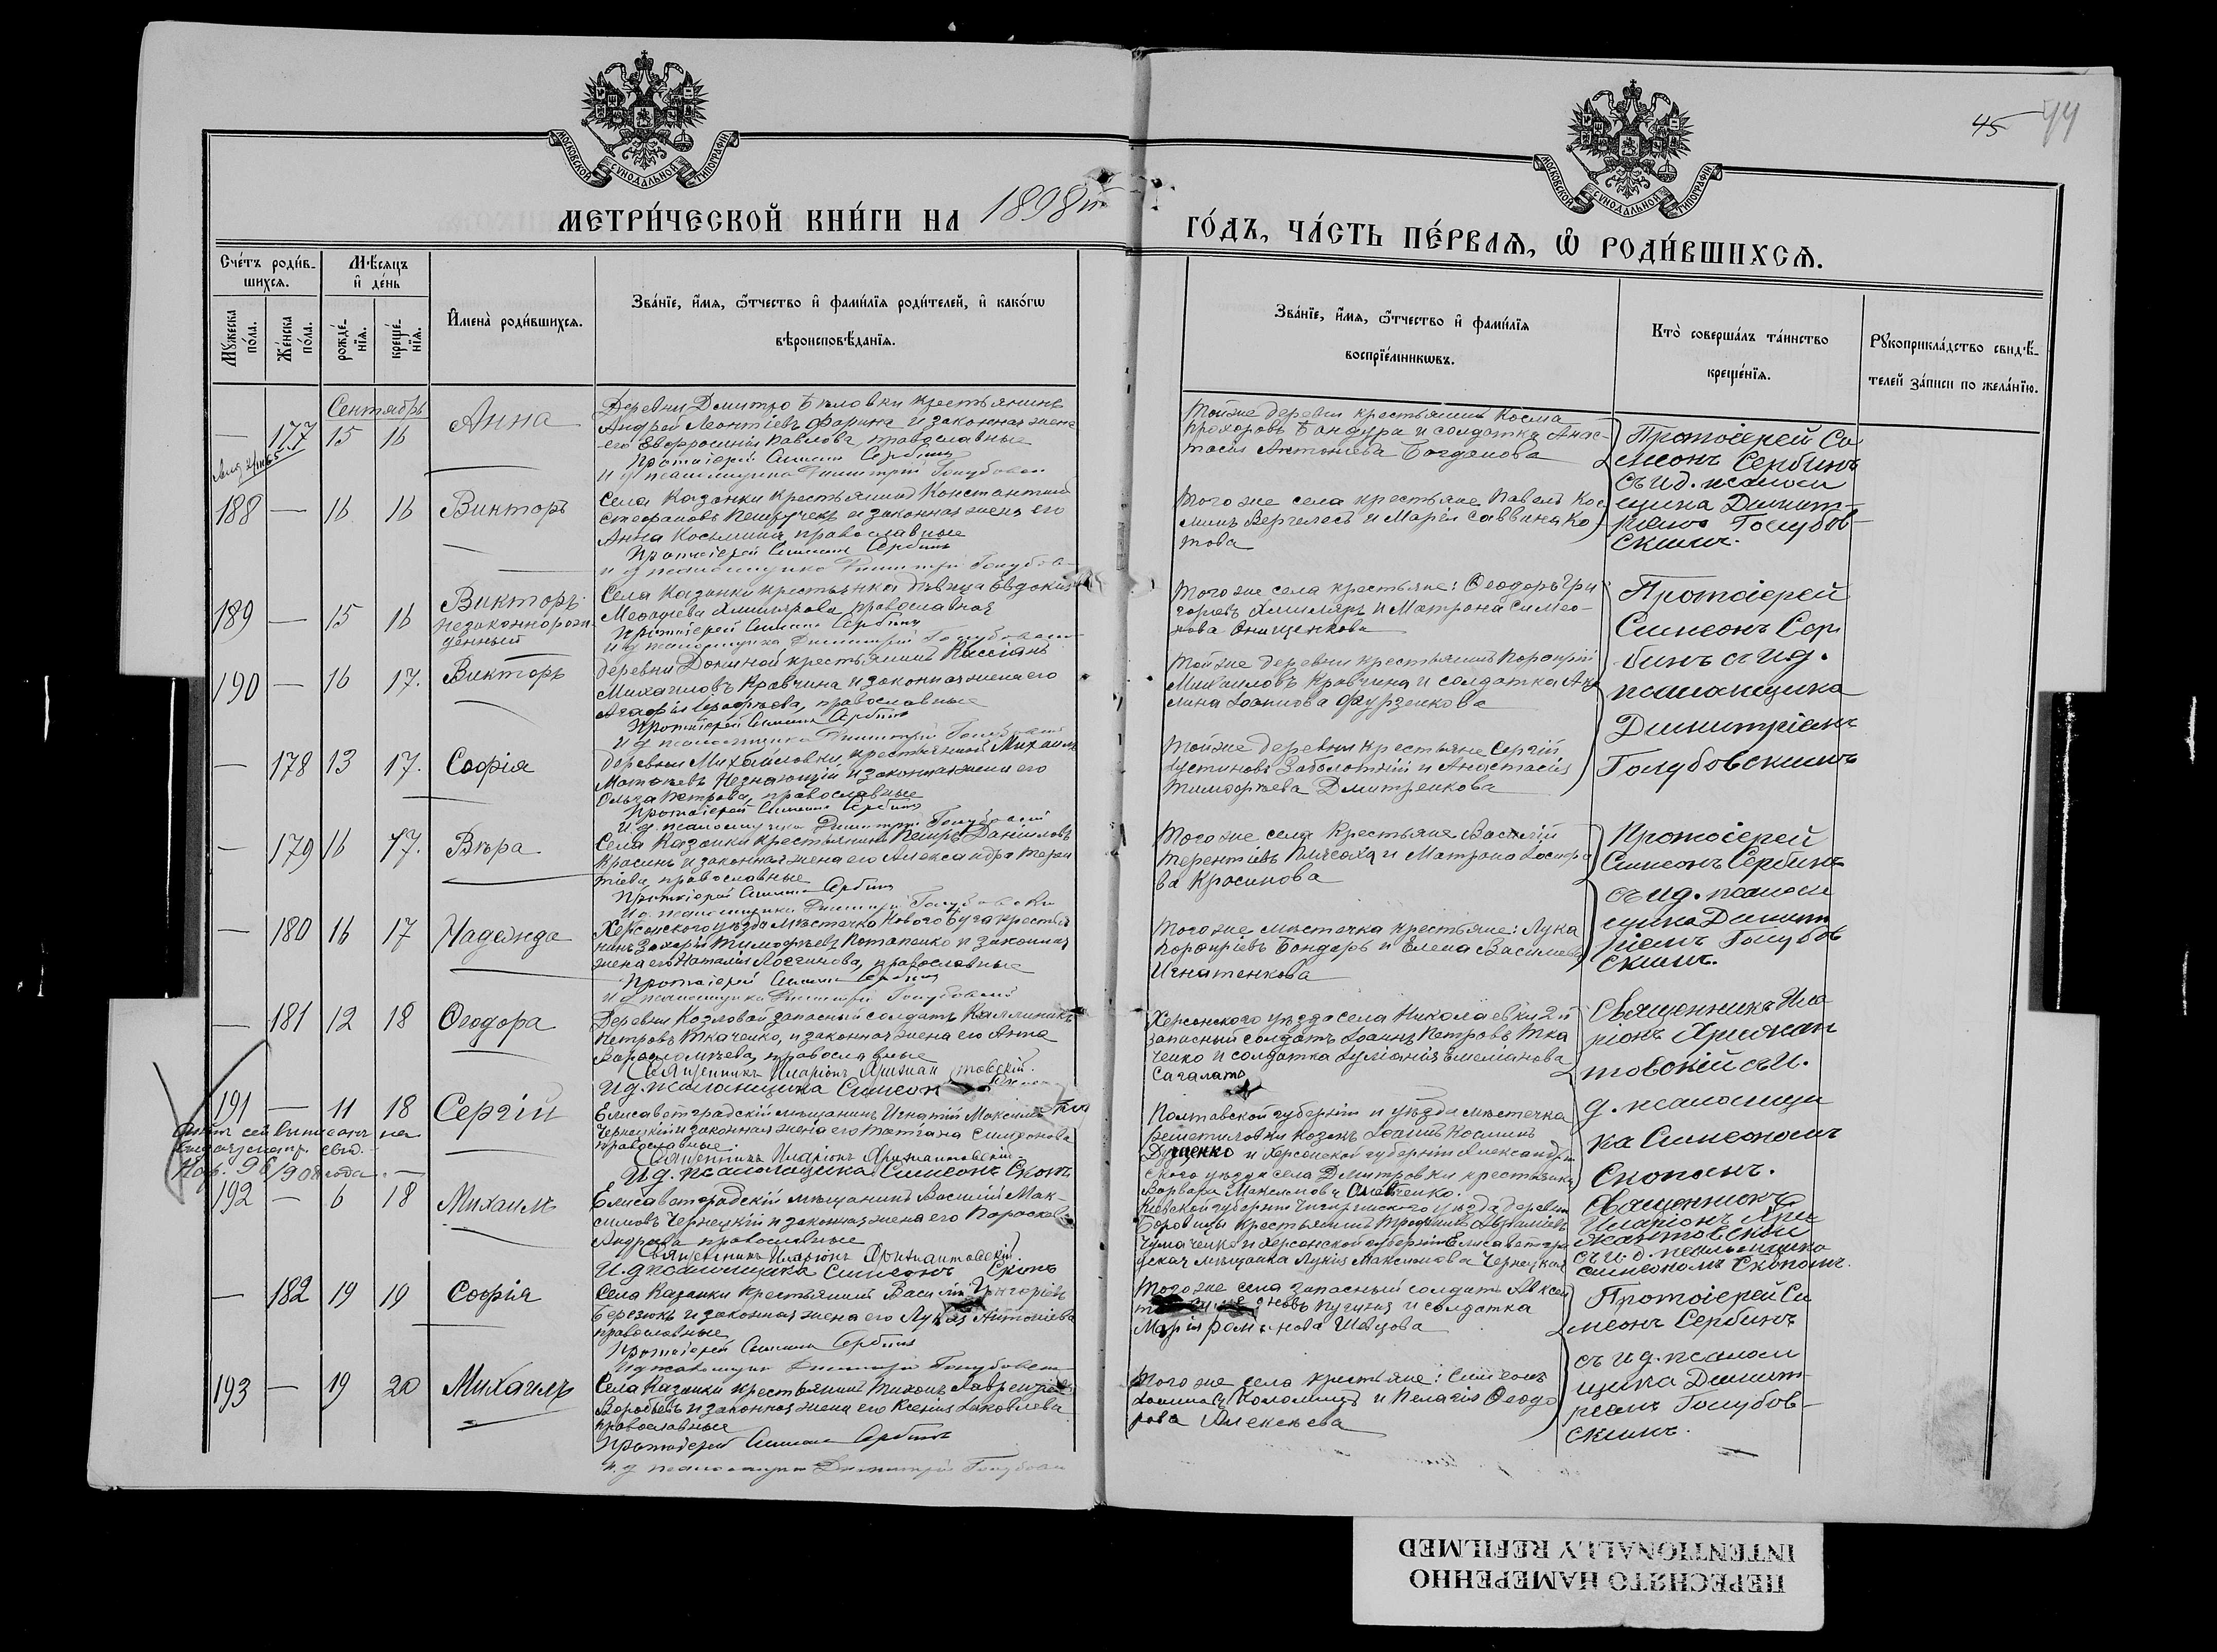 45 44
МОСКОВСКОЙ СѴНОДАЛЬНОЙ ТИПОГРАФІИ
МОСКОВСКОЙ СѴНОДАЛЬНОЙ ТИПОГРАФІИ
МЕТРИ́ЧЕСКОЙ КНИ́ГИ НА 1898й
ГО́ДЪ, ЧА́СТЬ ПЕ́РВАѦ, Ѽ РОДИ́ВШИХСѦ.
Сче́тъ роди́в-
шихсѧ.
Мѣ́сѧцъ
и҆ де́нь
Мꙋ́жеска по́ла.
Же́нска по́ла.
рожде́-нїѧ.
креще́-нїѧ.
И҆мена̀ роди́вшихсѧ.
Зва́нїе, и҆́мѧ, ѻ҆́тчество и҆ фами́лїѧ роди́телей, и҆ како́гѡ
вѣроисповѣ́данїѧ.
Зва́нїе, и҆́мѧ, ѻ҆́тчество и҆ фами́лїѧ
воспрїе́мникѡвъ.
Кто̀ соверша́лъ та́инство
креще́нїѧ.
Рꙋкоприкла́дство свидѣ́-
телей за́писи по жела́нїю.
Сентябрь
— 177 15 16 Анна
Деревни Дмитро Бѣловки крестьянинъ
Андрей Леонтіевъ Фарина и законная жена
его Евфросинія Павлова, православные
Протоіерей Симеонъ Сербинъ
И д псаломщика Димитрій Голубовскій
Той же деревни крестьянинъ Косма
Прохоровъ Бандура и солдатка Анас-
тасія Антоніева Богданова
Протоіерей Си
меонъ Сербинъ
съ и д. псалом
щика Димит-
ріемъ Голубов-
скимъ.
188 — 16 16 Викторъ
Села Казанки крестьянинъ Константинъ
Стефановъ и законная жена его
Анна Косьмина, православные
Протоіерей Симеонъ Сербинъ
и д псаломщика Димитрій Голубов
Того же села крестьяне Павелъ Кос
минъ Вергелесъ и Марія Саввина Ко-
това
189 — 15 16 Викторъ
незаконнорож
денный
Села Казанки крестьянка дѣвица Евдокія
Меѳодіева православная
Протоіерей Симеонъ Сербинъ
И д псаломщика Димитрій Голубовскій
Того же села крестьяне: Ѳеодоръ Гри
горьевъ и Матрона Симео-
нова Онищенкова
Протоіерей
Симеонъ Сер
бинъ съ и д.
псаломщика
Димитріемъ
Голубовскимъ
190 — 16 17. Викторъ
деревни крестьянинъ Кассіанъ
Михаиловъ Кравчина и законная жена его
Агафія православные
Протоіерей Симеонъ Сербинъ
И д псаломщика Димитрій Голубовскій
Той же деревни крестьянинъ Порфирій
Михаиловъ Кравчина и солдатка Аку
лина Іоаннова Фурзенкова
— 178 13 17. Софія
деревни Михайловки, крестьянинъ Михаилъ
Матѳеевъ Незнающій и законная жена его
Ольга Петрова, православные
Протоіерей Симеонъ Сербинъ
И. д. псаломщика Димитрій Голубовскій
Той же деревни крестьяне Сергій
Іустиновъ Заболотній и Анастасія
Тимофѣева Дмитренкова
— 179 16 17. Вѣра
Села Казанки крестьянинъ Петръ Даніиловъ
Красинъ и законная жена его Александра Терен
тіева, православные
Протоіерей Симеонъ Сербинъ
И д. псаломщика Димитрій Голубовскій
Того же села крестьяне Василій
Терентіевъ и Матрона Іосифо
ва Красинова
Протоіерей
Симеонъ Сербинъ
съ и д. псалом
щика Димит
ріемъ Голубов
скимъ.
— 180 16 17 Надежда
Херсонскаго уѣзда мѣстечка Новаго Буга крестья
нинъ Захарій Тимофѣевъ Потапенко и законная
жена его Наталія Логгинова, православные
Протоіерей Симеонъ Сербинъ
И д псаломщика Димитрій Голубовскій
Того же мѣстечка крестьяне: Лука
Порфиріевъ Бондарь и Елена Васильева
Игнатенкова
— 181 12 18 Ѳеодора
Деревни Козловой запасный солдатъ Каллиникъ
Петровъ Ткаченко, и законная жена его Анна
Варфоломѣева, православные
Священникъ Иларіонъ Хрисантовскій.
И д. псаломщика Симеонъ
Херсонскаго уѣзда села Николаевки 2й
запасный солдатъ Іоаннъ Петровъ Тка
ченко и солдатка Іуліанія Емеліанова
Сагалата
Священникъ Ила
ріонъ
товскій съ и.
д. псаломщи
ка Симеономъ
Скопанъ.
191 — 11 18 Сергій
Елисаветградскій мѣщанинъ Игнатій Максимовъ
Чернецкій и законная жена его Татіана Симеонова
православные
Священникъ Иларіонъ
И д. псаломщика Симеонъ
Полтавской губерніи и уѣзда мѣстечка
Решетиловки козакъ Іоаннъ Косминъ
и Херсонской губерніи Александрій
скаго уѣзда села Дмитровки крестьянка
Варвара Максимова
192 — 6 18 Михаилъ
Елисаветградскій мѣщанинъ Василій Мак-
симовъ Чернецкій и законная жена его Параскева
Андреева православные
Священникъ Иларіонъ
И. д псаломщика Симеонъ
Кіевской губерніи Чигиринскаго уѣзда деревни
Боровицы крестьянинъ Трофимъ
Чумаченко и Херсонской губерніи Елисаветгра
дская мѣщанка Лукія Максимова Чернецкая
Священникъ
Иларіонъ
съ и. д. псаломщика
Симеономъ Скопанъ.
— 182 19 19 Софія
Села Казанки крестьянинъ Василій Григоріевъ
Березюкъ и законная жена его Лукія Антоніева
православные
Протоіерей Симеонъ Сербинъ
И д псаломщика Димитрій Голубовскій
Того же села запасный солдатъ
и солдатка
Марія Романова Шевцова
Протоіерей Си
меонъ Сербинъ
съ и д. псалом
щика Димит-
ріемъ Голубов-
скимъ.
193 — 19 20 Михаилъ
Села Казанки крестьянинъ Тихонъ Лаврентіевъ
Воробьевъ и законная жена его Ксенія Іаковлева
православные
Протоіерей Симеонъ Сербинъ
и. д псаломщика Димитрій Голубовскій
Того же села крестьяне: Симеонъ
Іоанновъ Коломіецъ и Пелагія Ѳеодо
рова Алексѣева
ПЕРЕСНЯТО НАМЕРЕННО
INTENTIONALLY REFILMED